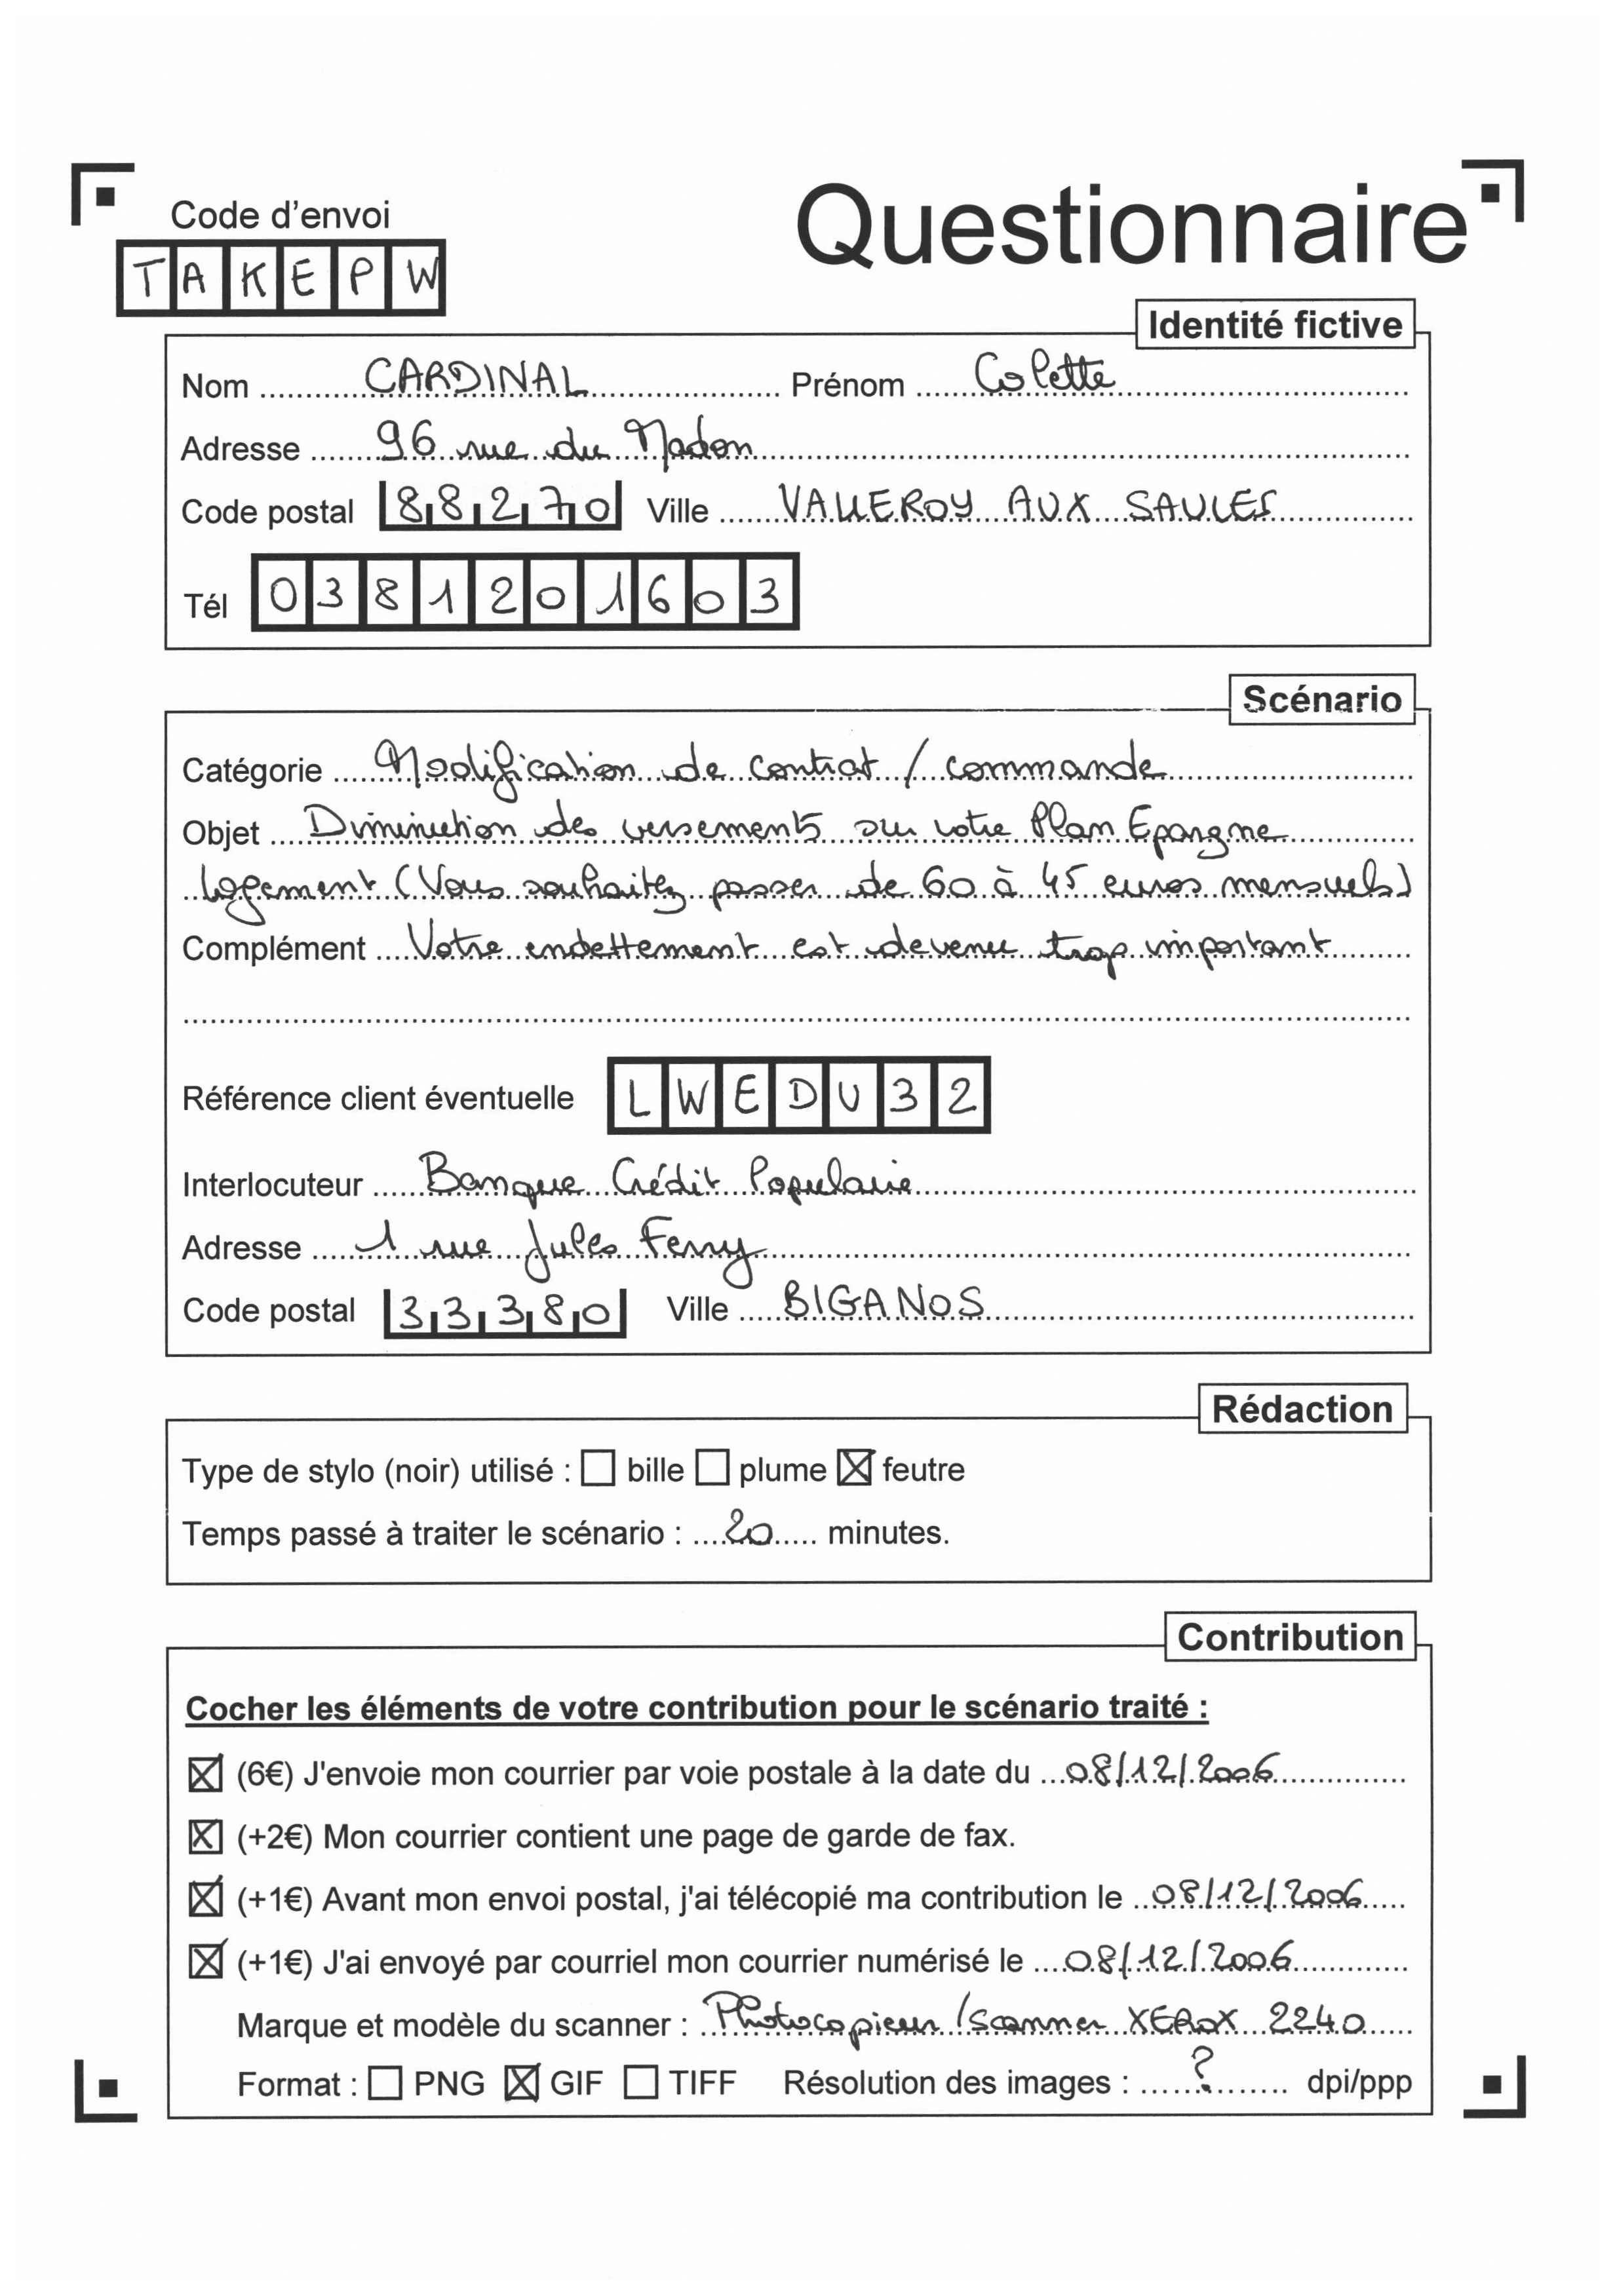 Code d'envoi
TAKEPW
Questionnaire
Identité fictive
Nom CARDINAL Prénom Colette
Adresse 96 rue du Madon
Code postal 88270 Ville VALLEROY AUX SAULES
Tél 0381201603
Scénario
Catégorie Modification de contrat / commande
Objet Diminution des versements sur votre Plan Epargne
logement (Vous souhaitez passer de 60 à 45 euros mensuels)
Complément Votre endettement est devenu trop important
Référence client éventuelle LWEDU32
Interlocuteur Banque Crédit Populaire
Adresse 1 rue Jules Ferry
Code postal 33380 Ville BIGANOS
Rédaction
Type de stylo (noir) utilisé : bille plume feutre
Temps passé à traiter le scénario : 20 minutes.
Contribution
Cocher les éléments de votre contribution pour le scénario traité :
(6€) J'envoie mon courrier par voie postale à la date du 08/12/2006
(+2€) Mon courrier contient une page de garde de fax.
(+1€) Avant mon envoi postal, j'ai télécopié ma contribution le 08/12/2006
(+1€) J'ai envoyé par courriel mon courrier numérisé le 08/12/2006
Marque et modèle du scanner : Photocopieur /Scanner XEROX 2240
Format : PNG GIF TIFF Résolution des images : ? dpi/ppp